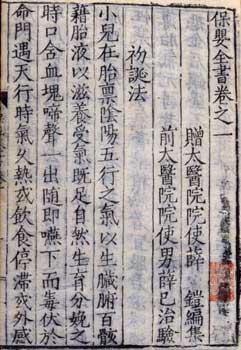 保嬰全書卷之一
贈太醫院院使薛 鎧編集
前太醫院院使男薛已治驗
初誕法
小兒在胎稟陰陽五行之氣以生臟腑百骸
藉胎液以滋養受氣既足自然生育分娩之
時口含血塊啼聲一出隨即嚥下而毒伏於
命門遇天行時氣久熱或飲食停滯或外感